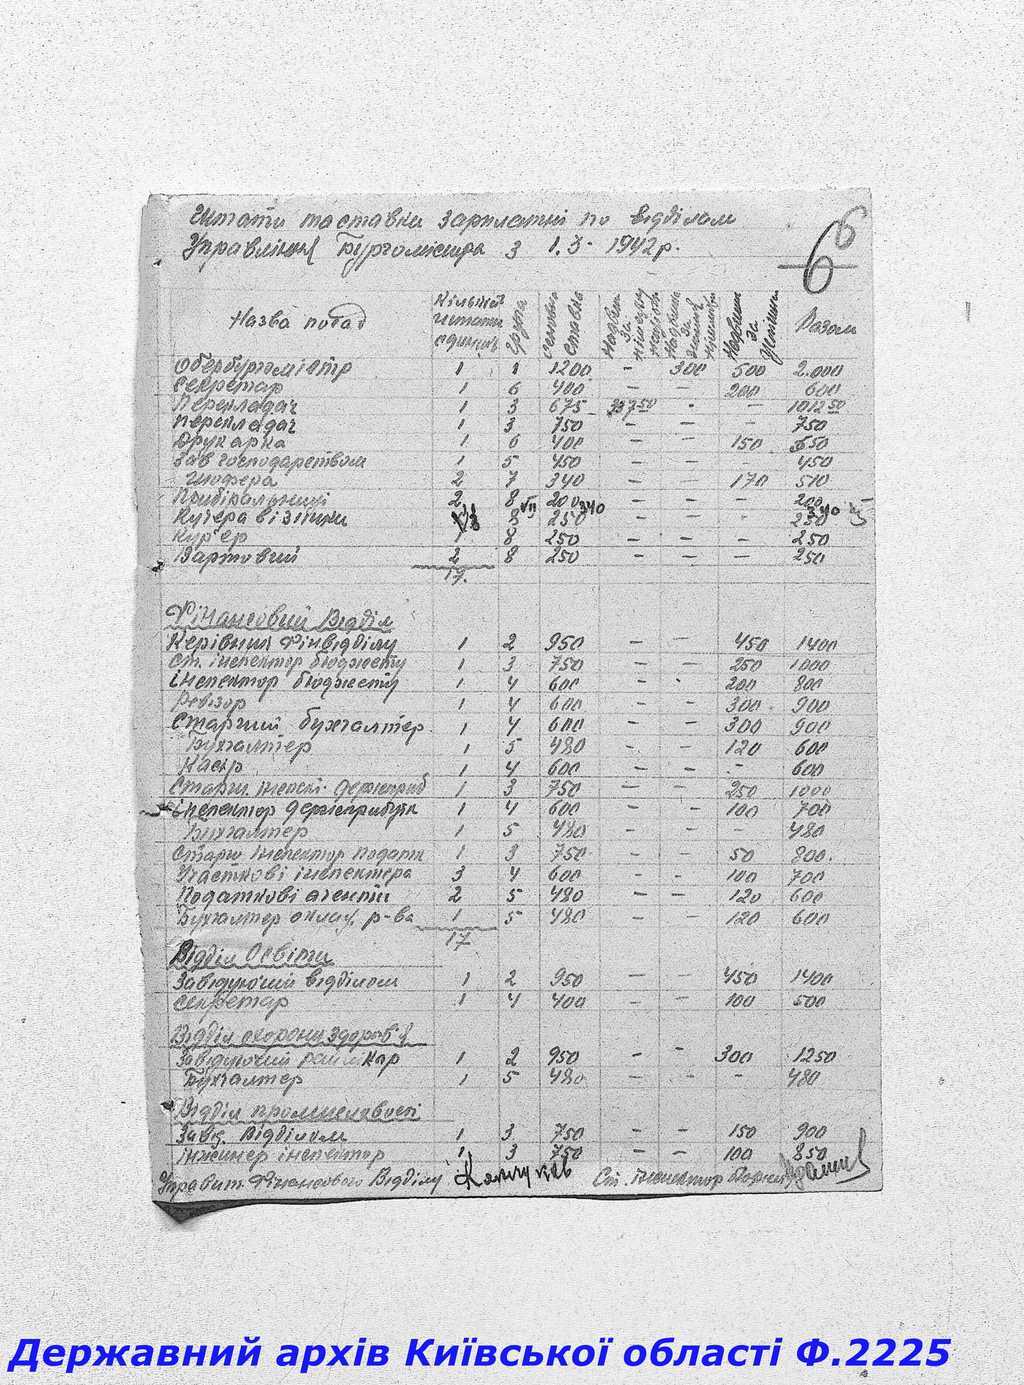 Штати та ставки зарплатні по відділам
Управління Бургомістра з 1.3. 1942 р.
6
6
Назва посад Кількість штатн. одиниць група основна ставка Надвиш. за Надвиш. за Надвиш. за Разом
Обербургомістр 1 1 1200 - 300 500 2.000
Секретар 1 6 400 - - 200 600
Перекладач 1 3 675 337 50 - - 1012 50
Перекладач 1 3 750 - - - 750
Друкарка 1 6 400 - - 150 550
Зав господарством 1 5 450 - - - 450
шофера 2 7 340 - - 170 510
Прибіральниці 2 8 200 - - - 200
Кучера візники 8 VII 250 340 - - - 250 340
Кур'ер 1 8 250 - - - 250
Вартовий 2 8 250 - - - 250
17.
Фінансовий Відділ
Керівник Фінвідділу 1 2 950 - - 450 1400
Ст. інспектор бюджету 1 3 750 - - 250 1000
інспектор бюджету 1 4 600 - - 200 800
Ревізор 1 4 600 - - 300 900
Старший бухгалтер 1 4 600 - - 300 900
Бухгалтер 1 5 480 - - 120 600
Касир 1 4 600 - - - 600
Старш. інспект. держприб 1 3 750 - - 250 1000
інспектор держприбутк 1 4 600 - - 100 700
Бухгалтер 1 5 480 - - - 480
Старш інспектор податк 1 3 750 - - 50 800
Участкові інспектера 3 4 600 - - 100 700
Податкові агенти 2 5 480 - - 120 600
Бухгалтер р-ва 1 5 480 - - 120 600
17
Відділ Освіти
Завідуючий відділом 1 2 950 - - 450 1400
Секретар 1 4 400 - - 100 500
Відділ охорони здоров'я
Завідуючий 1 2 950 - - 300 1250
Бухгалтер 1 5 480 - - - 480
Відділ промисловості
Завід. Відділом 1 3 750 - - 150 900
інженер інспектор 1 3 750 - - 100 850
Управит. Фінансового Відділу Ст. інспектор
Державний архів Київської області Ф.2225